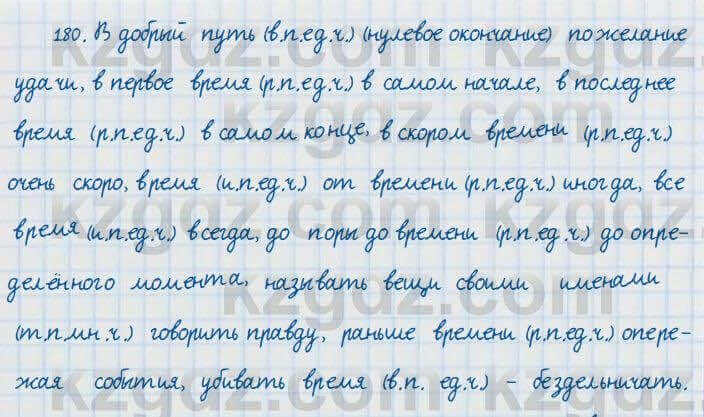 180. В добрый путь (в.п.ед.ч.) (нулевое окончание) пожелание
удачи, в первое время (р.п.ед.ч.) в самом начале, в последнее
время (р.п.ед.ч.) в самом конце, в скором времени (р.п.ед.ч.)
очень скоро, время (и.п.ед.ч.) от времени (р.п.ед.ч.) иногда, все
время (и.п.ед.ч.) всегда, до поры до времени (р.п.ед.ч.) до опре-
делённого момента, называть вещи своими именами
(т.п.мн.ч.) говорить правду, раньше времени (р.п.ед.ч.) опере-
жая события, убивать время (в.п. ед.ч.) - бездельничать.
kzgdz.com
kzgdz.com
kzgdz.com
kzgdz.com